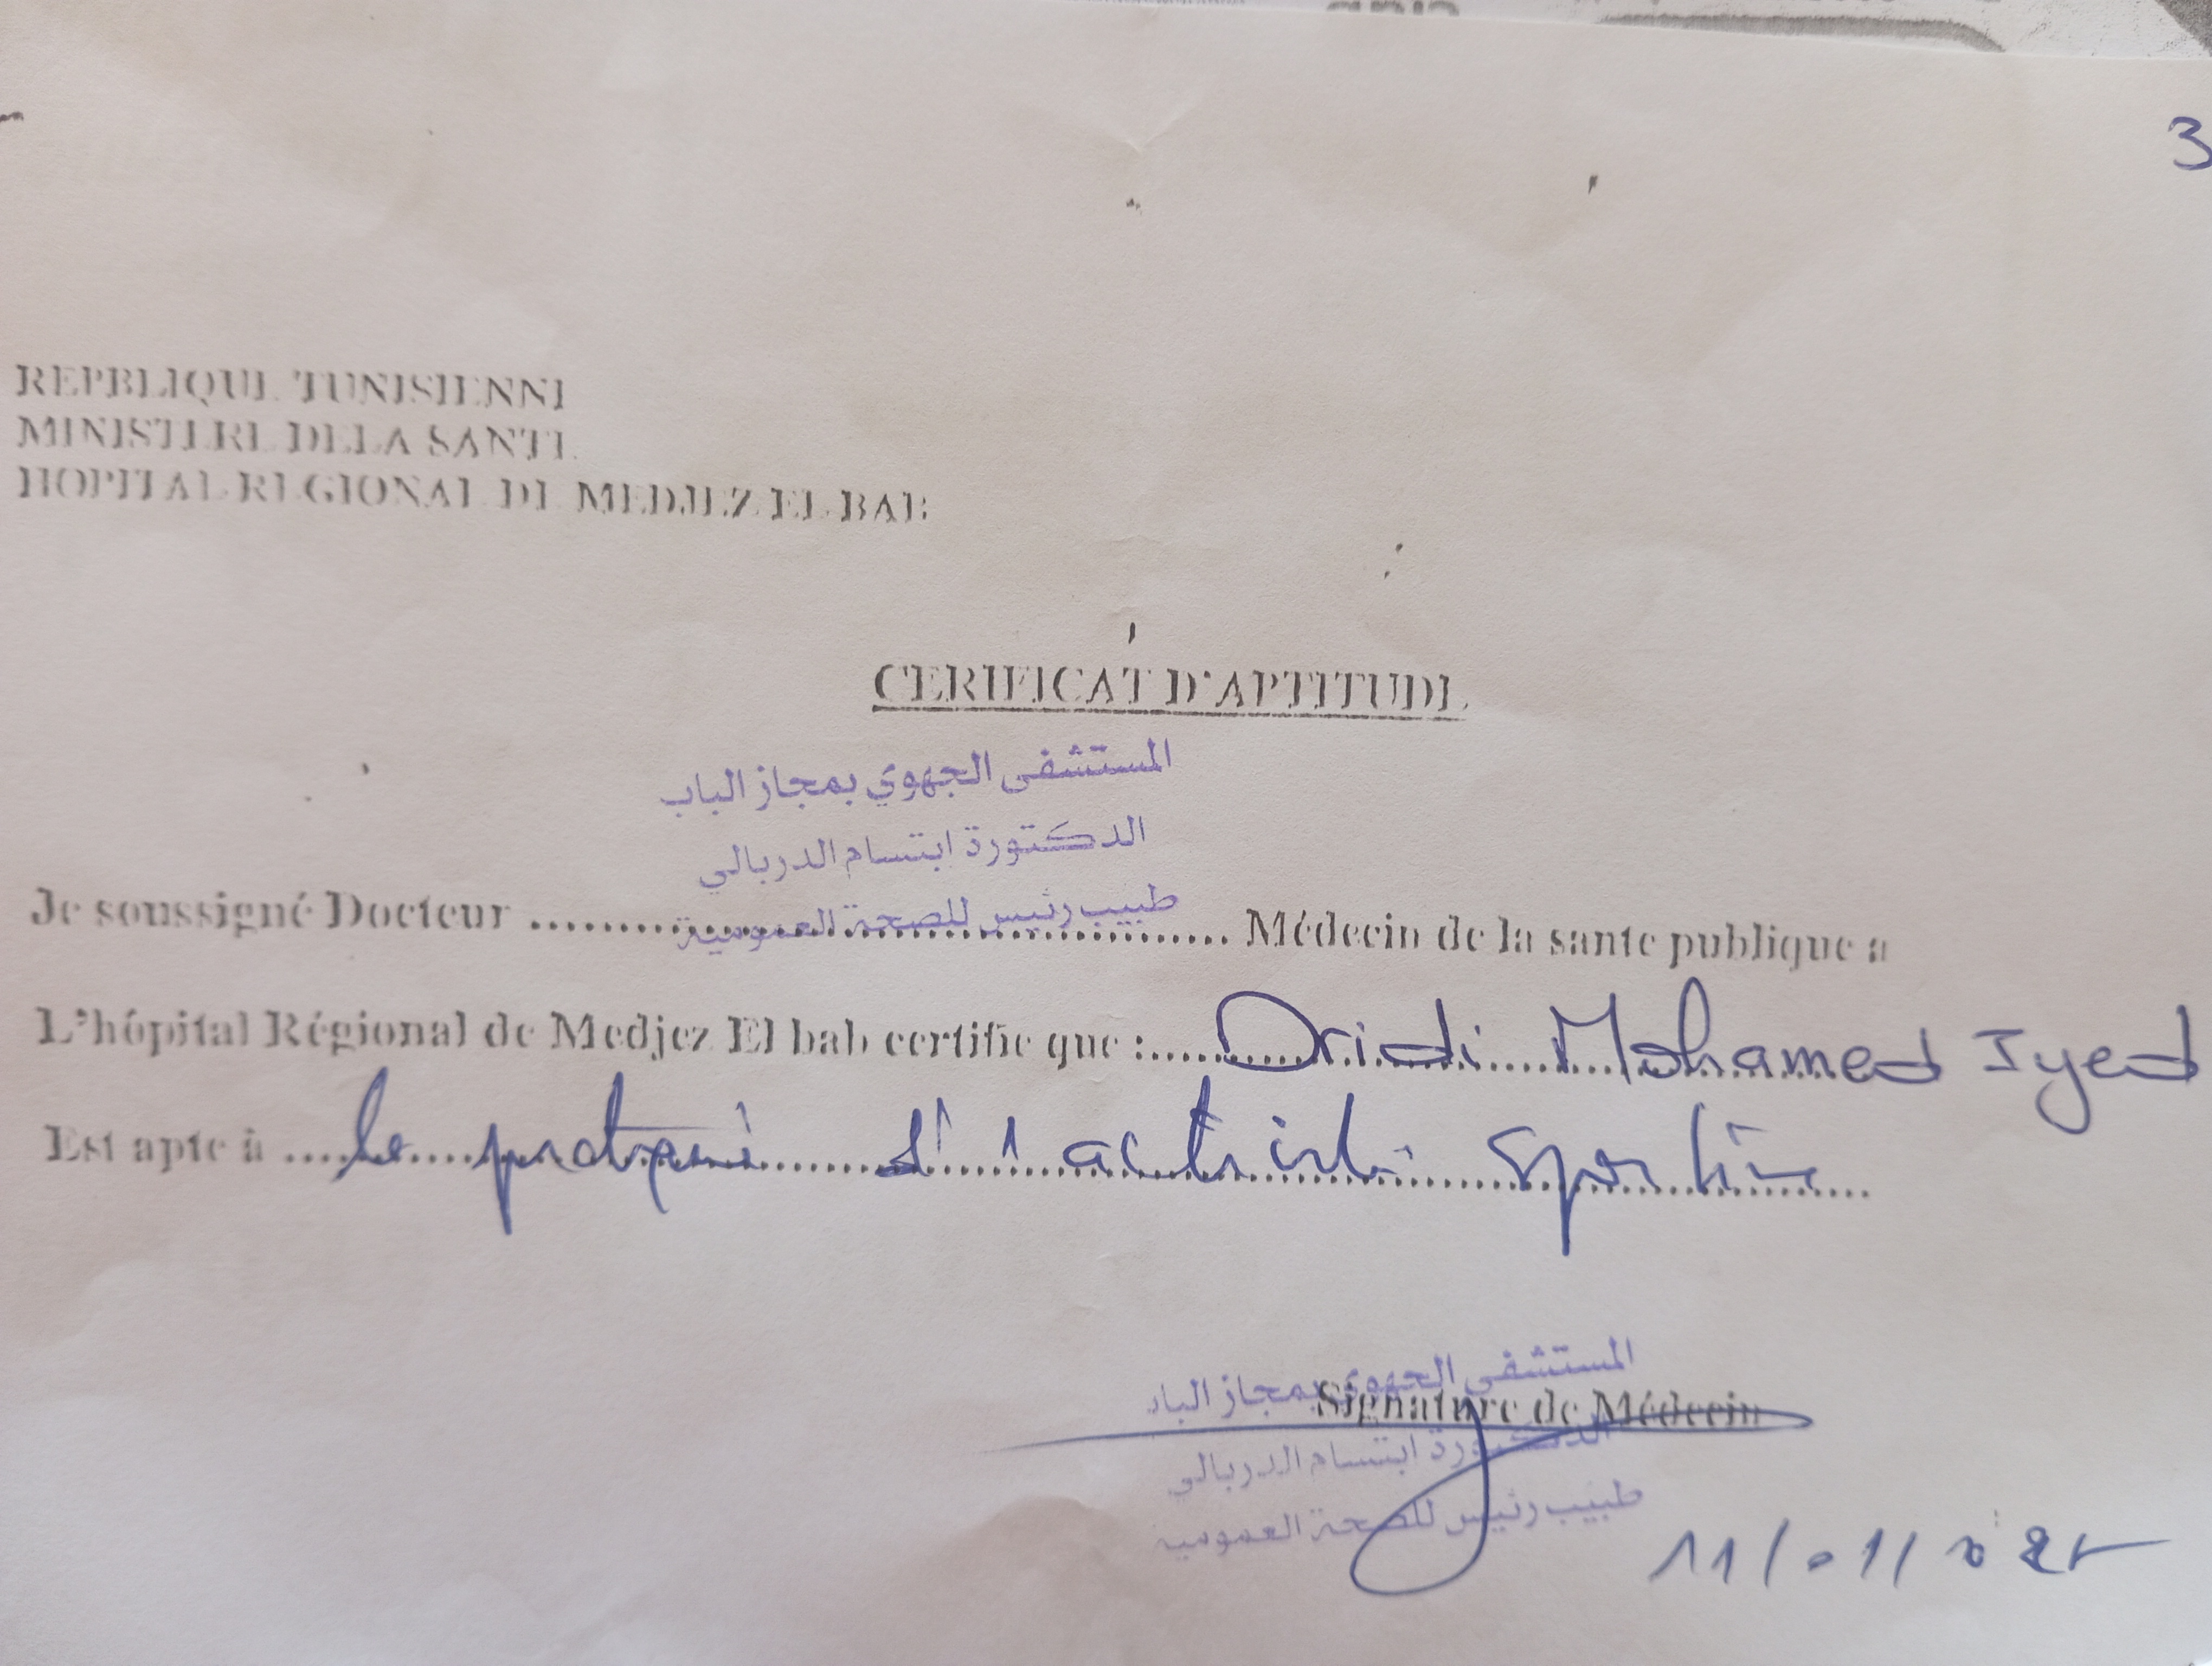 3
REPBLIQUE TUNISIENNE
MINISTERE DE LA SANTE
HOPITAL REGIONAL DE MEDJEZ EL BAB
CERIFICAT D'APTITUDE
المستشفى الجهوي بمجاز الباب
الدكتورة ابتسام الدربالي
طبيب رئيس للصحة العمومية
Je soussigné Docteur .................... Médecin de la sante publique a
L'hôpital Régional de Medjez El bab certifie que :...... Dridi Mohamed Iyed
Est apte à ...... le d' 1 activité sportive
المستشفى الجهوي بمجاز الباب
Signature de Médecin
الدكتورة ابتسام الدربالي
طبيب رئيس للصحة العمومية
11/01/